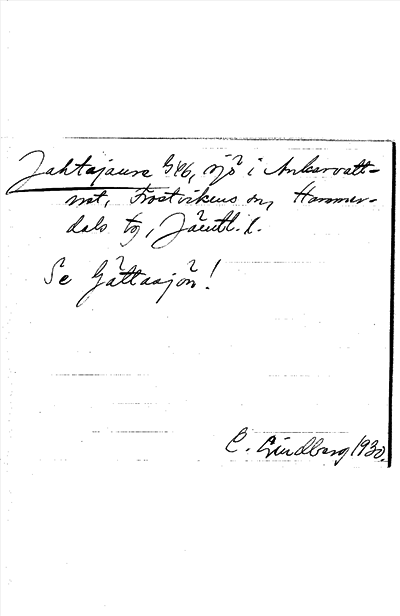 Jahtajaure GEG, sjö i Ankarvatt-
net, Frostvikens sn, Hammer-
dals tg, Jämtl. l.
Se Gåttasjön!
C. Lindberg 1930.